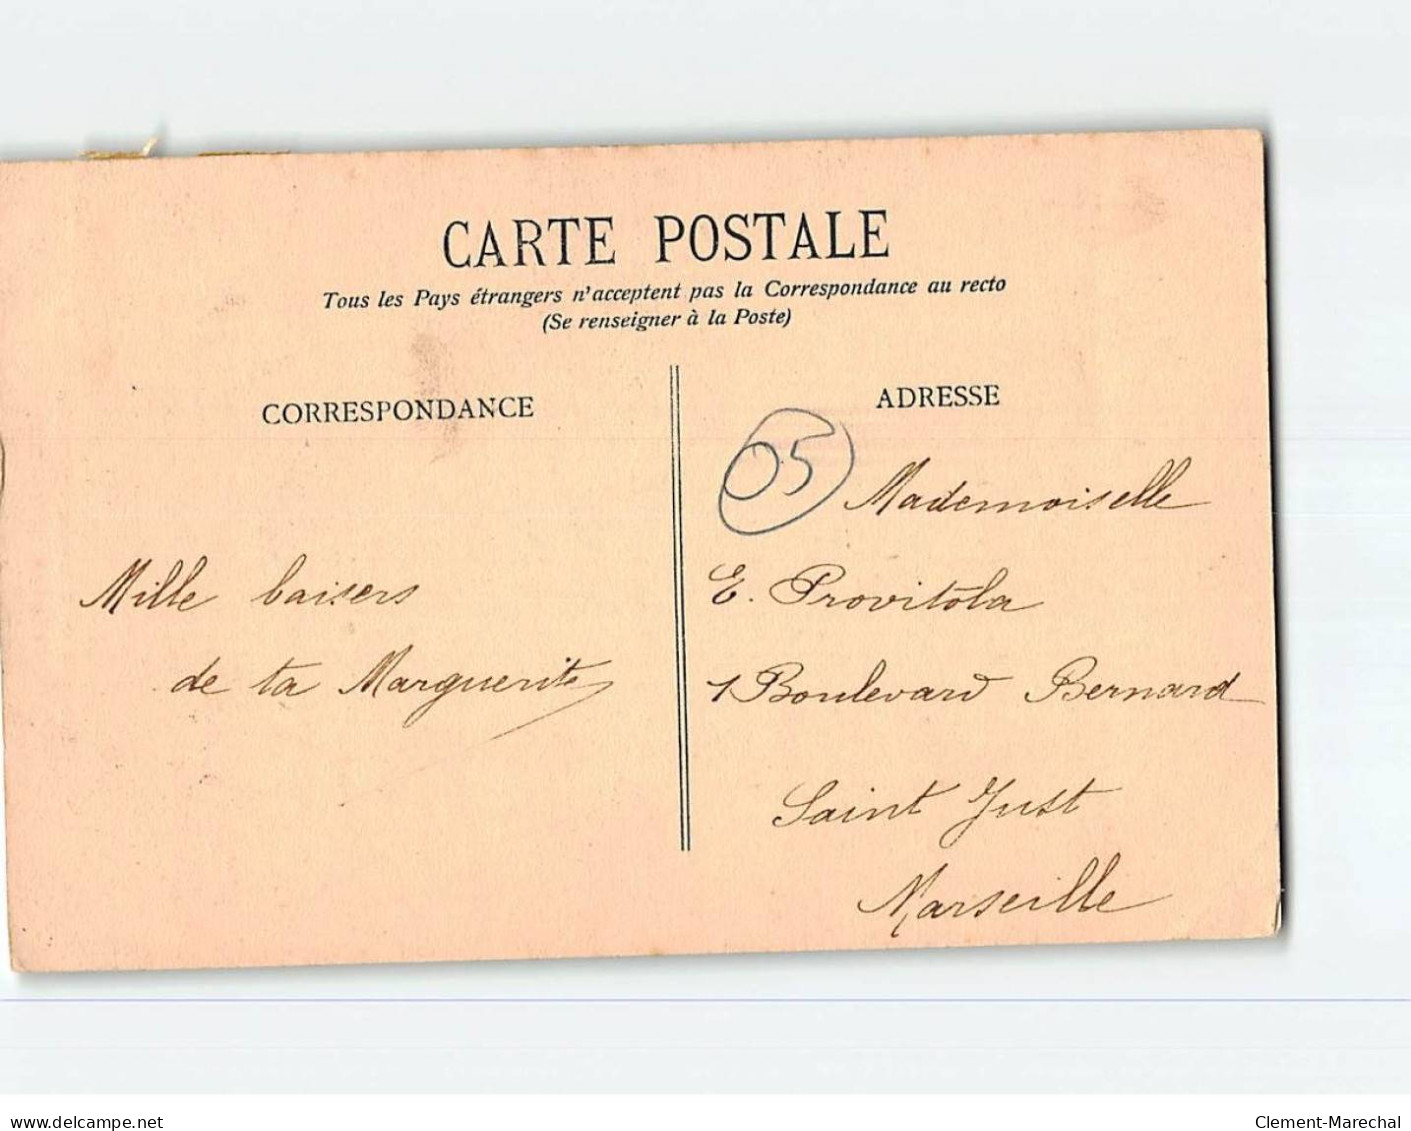 CARTE POSTALE
Tous les Pays étrangers n'acceptent pas la Correspondance au recto
(Se renseigner à la Poste)
CORRESPONDANCE
Mille baisers
de ta Marguerite
ADRESSE
05
Mademoiselle
E. Provitola
1 Boulevard Bernard
Saint Just
Marseille
www.delcampe.net
Clement-Marechal